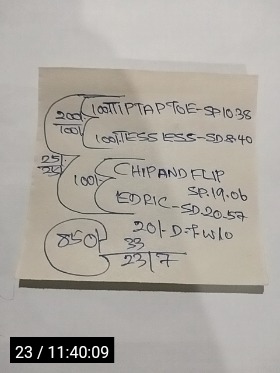 200/- 100/- TIPTAPTOE-SP10.38
100/- 100/- TESSIESS-SD8.40
25/-
25/- 100/- CHIPANDFLIP
SP.19.06
EDRIC-SD20.57
850/- 20/- D.F W/O
33
23/7
23 / 11:40:09